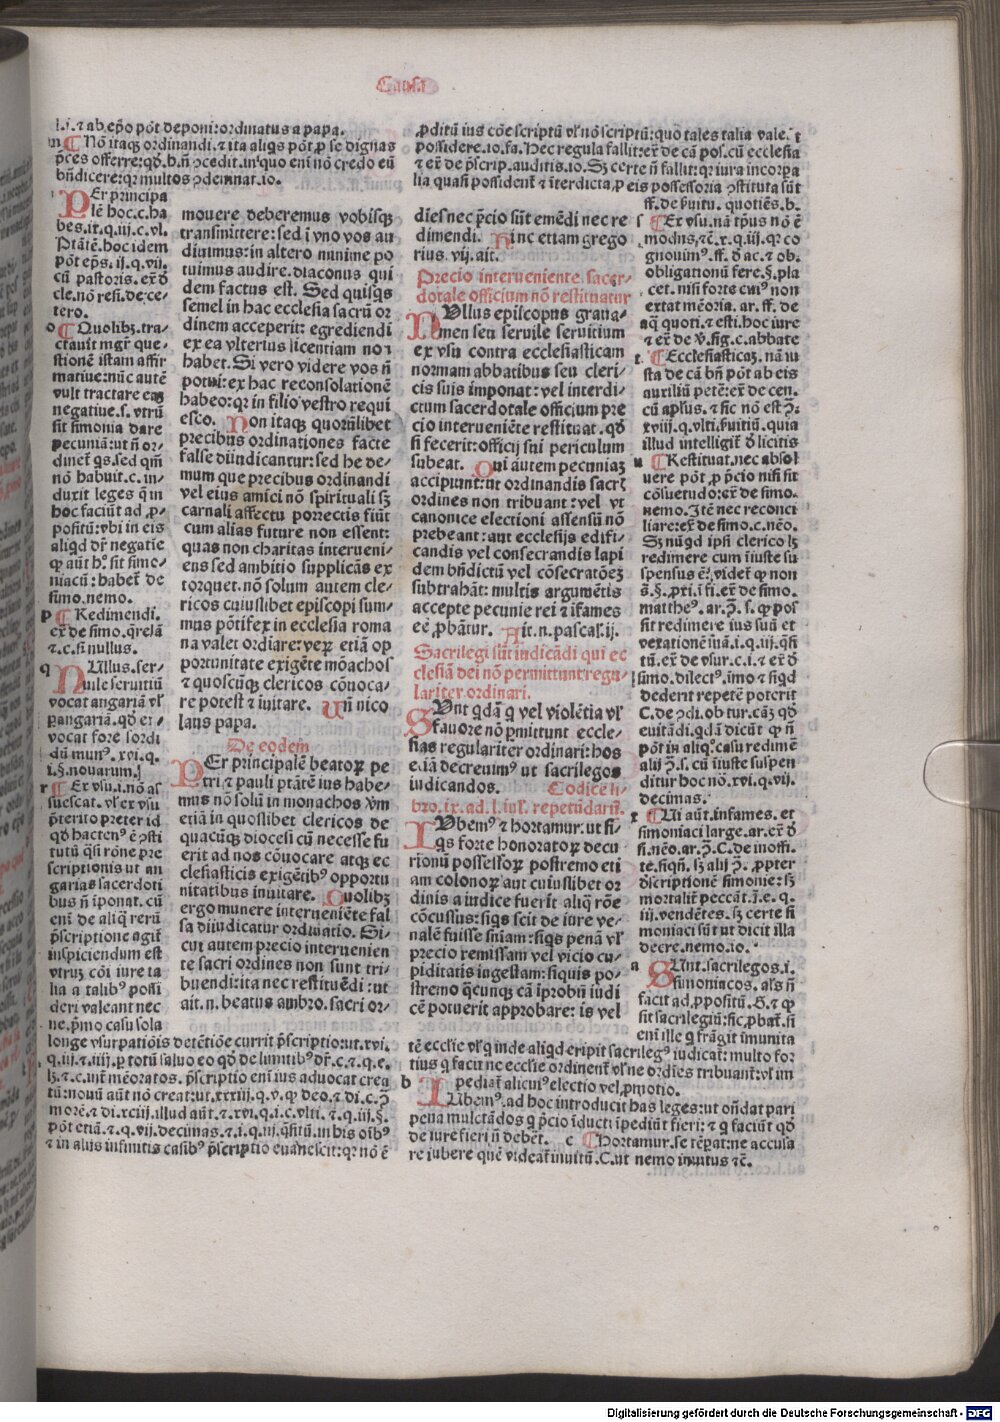 Causa
i.i. ⁊ ab ep̄o pōt deponi: ordinatus a papa.
m ¶ Nō itaq; ordinandi. ⁊ ita aliq̄s pōt p̱ se dignas
p̄ces offerre: qd̓. b.n̄ ↄcedit. in quo eni nō credo eū
bn̄dicere: qr multos ↄdemnat. io.
PEr principa
lē hoc. c. ha
bes. ix. q. iij. c. vl.
Ptātē. hoc idem
pōt ep̄s. ij. q. vij.
cū pastoris. ex̄ d̓
cle. nō resi. de ce-
tero.
o ¶ Quolibꝫ. tra-
ctauit mgr̄ que-
stionē istam affir
matiue: nūc autē
vult tractare eaꝫ
negatiue. s. vtrū
sit simonia dare
pecuniā: ut n̄ or-
dinet̄ q̄s. sed qm̄
nō habuit. c. in-
duxit leges q̄ in
hoc faciūt ad ꝓ-
positū: vbi in eis
aliqd dr̄ negatie
qꝫ aūt hꝰ. sit simo-
niacū: habet̄ de
simo. nemo.
p ¶ Redimendi.
ex̄ de simo. q̄relā
⁊ c. si nullus.
q NUllus. ser-
uile seruitiū
vocat angariā vl̓
ꝑangariā. qd̓ ei-
vocat fore sordi
dū munꝰ. xvi. q.
i. §. nouarum.
r ¶ Ex vsu. i. nō as
suescat. vl̓ ex vsu
p̄terito preter id
qd̓ hactenꝰ ē ↄsti
tutū q̄si rōne pre
scriptionis ut an
garias sacerdoti
bus n̄ iponat. cū
eni de aliq̄ rerū
p̄scriptione agit̄
inspiciendum est
vtruꝫ cōi iure ta
lia a talibꝰ possi
deri valeant nec
ne. p̄mo casu sola
longe vsurpatiōis detētiōe currit p̄scriptio: ut. xvi.
q. iij. ⁊. iiij. ꝑ totū saluo eo qd̓ de limitibꝰ dr̄. c. ⁊. q. e.
lꝫ. ⁊. c. iux̄ mēoratos. p̄scriptio eni ius aduocat crea
tū: nouū aūt nō creat: ut. xxxiij. q. v. qꝫ deo. ⁊ di. c. p̄
more. ⁊ di. xciij. illud aūt. ⁊. xvi. q. i. c. vlti. ⁊. q. iij. §.
pōt etiā. ⁊. q. vij. decimas. ⁊. i. q. iij. q̄sitū. in his oībꝰ
⁊ in aliis infinitis casibꝰ p̄scriptio euanescit: qr nō ē
mouere deberemus vobisqꝫ
transmittere: sed i vno vos au
diuimus: in altero minime po
tuimus audire. diaconus qui
dem factus est. Sed quisq̄s
semel in hac ecclesia sacrū or
dinem acceperit: egrediendi
ex ea vlterius licentiam non
habet. Si vero videre vos n̄
potui: ex hac reconsolationē
habeo: qr in filio vestro requi
esco. Non itaqꝫ quorūlibet
precibus ordinationes facte
false diiudicantur: sed he de-
mum que precibus ordinandi
vel eius amici nō spirituali sꝫ
carnali affectu porrectis fiūt
cum alias future non essent:
quas non charitas interueni-
ens sed ambitio supplicās ex
torquet. nō solum autem cle-
ricos cuiuslibet episcopi sum-
mus pōtifex in ecclesia roma
na valet ordiāre: veꝝ etiā op
portunitate exigēte mōachos
⁊ quoscūqꝫ clericos cōuoca-
re potest ⁊ iuitare. Uñ nico
laus papa.
De eodem
PEr principalē beatoꝝ pe
tri ⁊ pauli ptātē ius habe-
mus nō solū in monachos vm̄
etiā in quoslibet clericos de
quacūqꝫ diocesi cū necesse fu
erit ad nos cōuocare atqꝫ ec
clesiasticis exigētibꝰ opportu
nitatibus inuitare. Quolibꝫ
ergo munere interueniēte fal
sa diiudicatur ordinatio. Si-
cut autem precio interuenien
te sacri ordines non sunt tri-
buendi: ita nec restituēdi: ut
ait. n. beatus ambro. sacri or-
ꝓditū ius cōe scriptū vl̓ nō scriptū: quo tales talia vale. t̄
possidere. io. fa. Nec regula fallit: ex̄ de cā pos. cū ecclesia
⁊ ex̄ de p̄scrip. auditis. io. Sꝫ certe n̄ fallit: qr iura incorpa
lia quasi possident̄ ⁊ īterdicta, ꝓ eis possessoria ↄstituta sūt
ff. de s̄uitu. quotiēs. b.
dies nec p̄cio sūt emēdi nec re
dimendi. Hinc etiam grego
rius. vij. ait.
Precio interueniente sacer-
dotale officium nō restituatur
NUllus episcopus graua-
men seu seruile seruitium
ex vsu contra ecclesiasticam
normam abbatibus seu cleri-
cis suis imponat: vel interdi-
ctum sacerdotale officium pre
cio interueniēte restituat. qd̓
si fecerit: officij sui periculum
subeat. Qui autem pecuniaꝫ
accipiunt: ut ordinandis sacrꝫ
ordines non tribuant: vel vt
canonice electioni assensū nō
prebeant: aut ecclesijs edifi-
candis vel consecrandis lapi
dem bn̄dictū vel cōsecratōeꝫ
subtrahāt: multis argumētis
accepte pecunie rei ⁊ ifames
eē ꝓbātur. Ait. n. pascal. ij.
Sacrilegi sūt iudicādi qui ec
clesiā dei nō permittunt regu-
lariter ordinari.
SUnt qdā q̄ vel violētia vl̓
fauore nō ꝑmittunt eccle-
sias regulariter ordinari: hos
e. iā decreuimꝰ ut sacrilegos
iudicandos. Codice li-
bro. ix. ad. l. iul̓. repetūdarū.
IUbemꝰ ⁊ hortamur: ut si-
q̄s forte honoratoꝝ decu
rionū possessoꝝ postremo eti
am colonoꝝ aut cuiuslibet or
dinis a iudice fuerit aliq̄ rōe
cōcussus: siq̄s scit de iure ve-
nalē fuisse sn̄iam: siq̄s penā vl̓
precio remissam vel vicio cu-
piditatis ingestam: siquis po-
stremo q̄cunqꝫ cā īprobū iudi
cē potuerit approbare: is vel
s ¶ Ex vsu. nā tp̄us nō ē
modus, ⁊c̄. x. q. iij. qr co
gnouimꝰ. ff. d̓ ac. ⁊ ob.
obligationū fere. §. pla
cet. nisi forte cuiꝰ non
extat mēoria. ar. ff. de
aq̄ quoti. ⁊ esti. hoc iure
⁊ ex̄ de v̓. sig. c. abbate
t ¶ Ecclesiasticaꝫ. nā iu
sta de cā bn̄ pōt ab eis
auxiliū pete: ex̄ de cen.
cū apl̓us. ⁊ sic nō est ↄ̄.
xviij. q. vlti. s̄uitiū. quia
illud intelligit̄ d̓ licitis
u ¶ Restituat. nec absol
uere pōt ꝓ p̄cio nisi sit
cōsuetudo: ex̄ de simo.
nemo. Itē nec reconci
liare: ex̄ de simo. c. nēo.
Sꝫ nūqd ip̄si clerico lꝫ
redimere cum iiuste su
spensus ē: videt̄ qꝫ non
s. §. pxi. i fi. ex̄ de simo.
mattheꝰ. ar. ↄ̄. s. qꝫ pos
sit redimere ius suū et
vexationē suā. i. q. iij. q̄si
tū. ex̄ de vsur. c. i. ⁊ ex̄ d̓
simo. dilectꝰ. imo ⁊ siqd
dederit repetē poterit
C. de ↄdi. ob tur. cāꝫ qd̓
euitādi. qdā dicūt qꝫ n̄
pōt in aliq̄ casu redimē
alij ↄ̄. s. cū iiuste suspen
ditur hoc nō. xvi. q. vij.
decimas.
x ¶ Ui aūt. infames. et
simoniaci large. ar. ex̄ d̓
si. nēo. ar. ↄ̄. C. de inoffi.
te. siqñ. sꝫ alij ↄ̄. ꝓpter
d̓scriptionē simonie: sꝫ
mortalit̄ peccāt. i. e. q.
iij. vendētes. sꝫ certe si
moniaci sūt ut dicit illa
decre. nemo. io.
a SUnt. sacrilegos. i.
simoniacos. als n̄
facit ad ꝓpositū. G. ⁊ qꝫ
sit sacrilegiū: sic ꝓbat̄. si
eni ille q̄ frāgit imunita
tē ecclie vl̓ q̄ inde aliqd eripit sacrilegꝰ iudicat̄: multo for
tius q̄ facit ne ecclie ordinent̄ vl̓ ne ordīes tribuant̄: vl̓ im
pediat̄ alicuiꝰ electio vel ꝓmotio.
b IUbemꝰ. ad hoc introducit has leges: ut on̄dat pari
pena mulctādos q̄ p̄cio īducti īpediūt fieri: ⁊ q̄ faciūt qd̓
de iure fieri n̄ debēt. c ¶ Hortamur. se tēpat: ne accusa
re iubere quē videat̄ inuitū. C. ut nemo inuitus ⁊c̄.
Digitalisierung gefördert durch die Deutsche Forschungsgemeinschaft - DFG